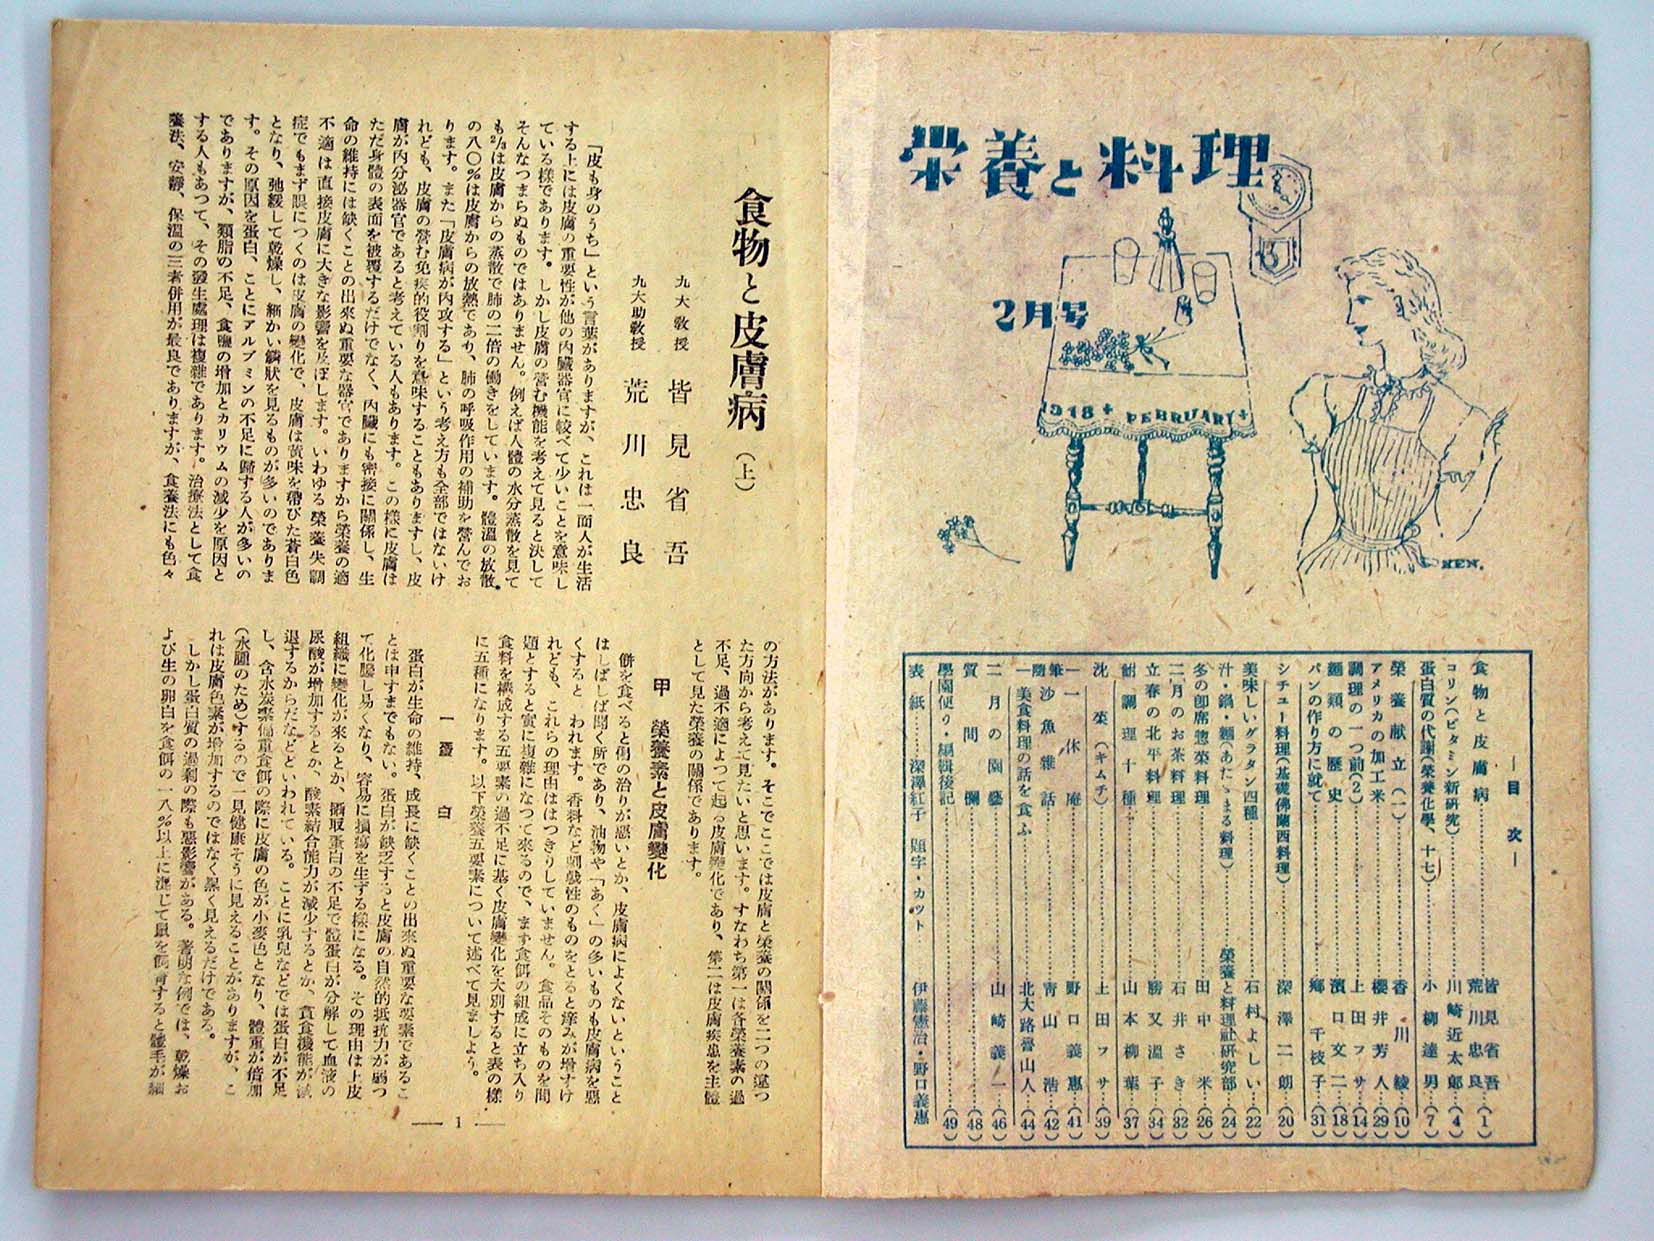 栄養と料理
2月号
1948 FEBRUARY
KEN.
―目次―
食物と皮膚病……皆見省吾 荒川忠良…(1)
コリン(ビタミン新研究)……川崎近太郎…(4)
蛋白質の代謝(榮養化學、十七)……小柳達男…(7)
榮養献立(一)……香川綾…(10)
アメリカの加工米……櫻井芳人…(29)
調理の一つ前(2)……上田フサ…(14)
麺類の歴史……濱口文二…(18)
パンの作り方に就て……鄕千枝子…(31)
シチュー料理(基礎佛蘭西料理)……深澤二朗…(20)
美味しいグラタン四種……石村よしい…(22)
汁・鍋・麵(あたゝまる料理)……榮養と料理社研究部…(24)
冬の卽席惣菜料理……田中米…(26)
二月のお茶料理……石井さき…(32)
立春の北平料理……勝又溫子…(34)
鮋調理十種……山本柳葉…(37)
沈菜(キムチ)……上田フサ…(39)
一休庵……野口義惠…(41)
隨筆
沙魚雜話……靑山浩…(42)
美食料理の話を食ふ……北大路魯山人…(44)
二月の園藝……山崎義一…(46)
質問欄……(48)
學園便り・編輯後記……(49)
表紙……深澤紅子 題字・カット 伊藤憲治・野口義惠
食物と皮膚病(上)
九大教授 皆見省吾
九大助敎授 荒川忠良
「皮も身のうち」という言葉がありますが、これは一面人が生活
する上には皮膚の重要性が他の内臟器官に較べて少いことを意味し
ている樣であります。しかし皮膚の營む機能を考えて見ると決して
そんなつまらぬものではありません。例えば人體の水分蒸散を見て
も⅔は皮膚からの蒸散で肺の二倍の働きをしています。體溫の放散
の八〇%は皮膚からの放熱であり、肺の呼吸作用の補助を營んでお
ります。また「皮膚病が内攻する」という考え方も全部ではないけ
れども、皮膚の營む免疫的役割りを意味することもありますし、皮
膚が内分泌器官であると考えている人もあります。この樣に皮膚は
ただ身體の表面を被覆するだけでなく、内臟にも密接に關係し、生
命の維持には缺くことの出來ぬ重要な器官でありますから榮養の適
不適は直接皮膚に大きな影響を及ぼします。いわゆる榮養失調
症でもまず眼につくのは皮膚の變化で、皮膚は黃味を帶びた蒼白色
となり、弛緩して乾燥し、細かい鱗狀を見るものが多いのでありま
す。その原因を蛋白、ことにアルブミンの不足に歸する人が多いの
でありますが、類脂の不足、食鹽の增加とカリウムの減少を原因と
する人もあつて、その發生處理は複雜であります。治療法として食
養法、安靜、保溫の三者併用が最良でありますが、食養法にも色々
の方法があります。そこでここでは皮膚と榮養の關係を二つの違つ
た方向から考えて見たいと思います。すなわち第一は各榮養素の過
不足、過不適によつて起る皮膚變化であり、第二は皮膚疾患を主體
として見た榮養の關係であります。
甲 榮養素と皮膚變化
餅を食べると傷の治りが惡いとか、皮膚病によくないということ
はしばしば聞く所であり、油物や「あく」の多いものも皮膚病を惡
くすると われます。香料など刺戟性のものをとると痒みが增すけ
れども、これらの理由ははつきりしていません。食品そのものを問
題とすると實に複雜になつて來るので、まず食餌の組成に立ち入り
食料を構成する五要素の過不足に基く皮膚變化を大別すると表の樣
に五種になります。以下榮養五要素について述べて見ましよう。
一 蛋白
蛋白が生命の維持、成長に缺くことの出來ぬ重要な要素であるこ
とは申すまでもない。蛋白が缺乏すると皮膚の自然的抵抗力が弱つ
て化膿し易くなり、容易に損瘍を生ずる樣になる。その理由は上皮
組織に變化が來るとか、攝取蛋白の不足で體蛋白が分解して血液の
尿酸が增加するとか、酸素結合能力が減少するとか、貪食機能が減
退するからだなどといわれている。ことに乳兒などでは蛋白が不足
し、含水炭素偏重食餌の際に皮膚の色が小麥色となり、體重が倍加
(水腫のため)するので一見健康そうに見えることがありますが、こ
れは皮膚色素が增加するのではなく黑く見えるだけである。
しかし蛋白質の過剩の際も惡影響がある。著明な例では、乾燥お
よび生の卵白を食餌の一八%以上に混じて鼠を飼育すると體毛が細
― 1 ―